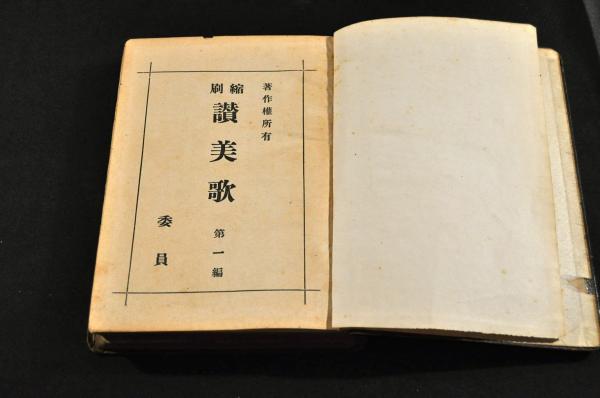 著作權所有
縮刷
讃美歌
第一編
委員